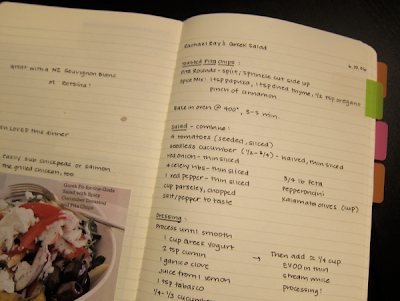 great with a NZ Sauvignon Blanc
or Retsina!
LOVES this dinner
easily sub chickpeas or salmon
the grilled chicken, too
Greek Fit-for-the-Gods
Salad with Spicy
Cucumber Dressing
and Pita Chips
Rachael Ray's Greek Salad
Toasted Pita Chips:
Pita Rounds - split / sprinkle cut side up
Spice Mix: 1 tsp paprika, 1 tsp dried thyme, 1/2 tsp oregano
pinch of cinnamon
Bake in oven @ 400°, 3-5 min.
Salad - combine:
4 tomatoes (seeded, sliced)
seedless cucumber (1/2-3/4) - halved, thin sliced
red onion - thin sliced
4 celery ribs - thin sliced
1 red pepper - thin sliced
cup parsley, chopped
salt/pepper to taste
3/4 lb feta
pepperoncini
kalamata olives (cup)
Dressing:
Process until smooth
1 cup Greek yogurt
2 tsp cumin
1 garlic clove
juice from 1 lemon
1 tsp tabasco
1/4-1/3 cucumber
→ Then add ≈ 1/4 cup
EVOO in thin
stream while
processing!